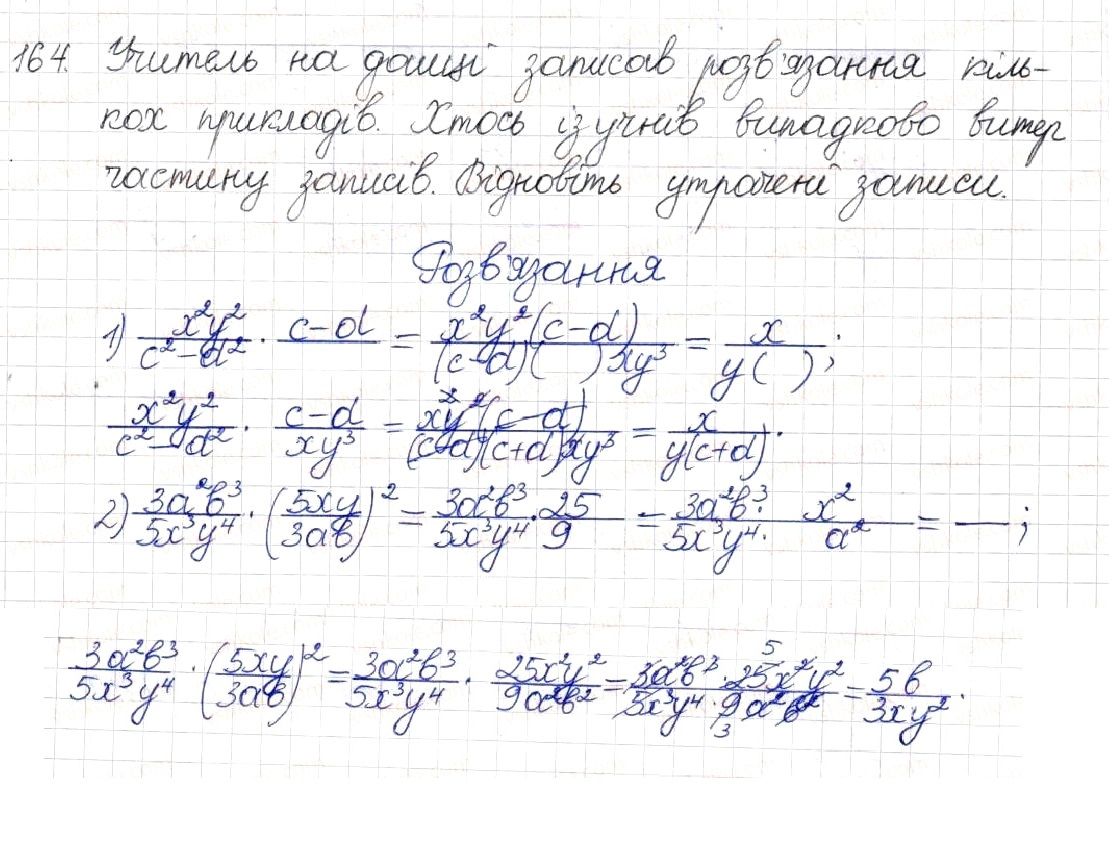 164. Учитель на дошці записав розв'язання кіль-
кох прикладів. Хтось із учнів випадково витер
частину записів. Відновіть утрачені записи.
Розв'язання
1) x²y²/(c²-d²) · (c-d)/ = x²y²(c-d)/((c-d)( )xy³) = x/(y( ));
x²y²/(c²-d²) · (c-d)/(xy³) = x²y²(c-d)/((c-d)(c+d)xy³) = x/(y(c+d)).
2) 3a²b³/(5x³y⁴) · (5xy/(3ab))² = 3a²b³/(5x³y⁴) · 25/9 = (3a²b³ · x²)/(5x³y⁴ · a²) = —;
3a²b³/(5x³y⁴) · (5xy/(3ab))² = 3a²b³/(5x³y⁴) · 25x²y²/(9a²b²) = (3a²b³ · 25x²y²)/(5x³y⁴ · 9a²b²) = 5b/(3xy²).